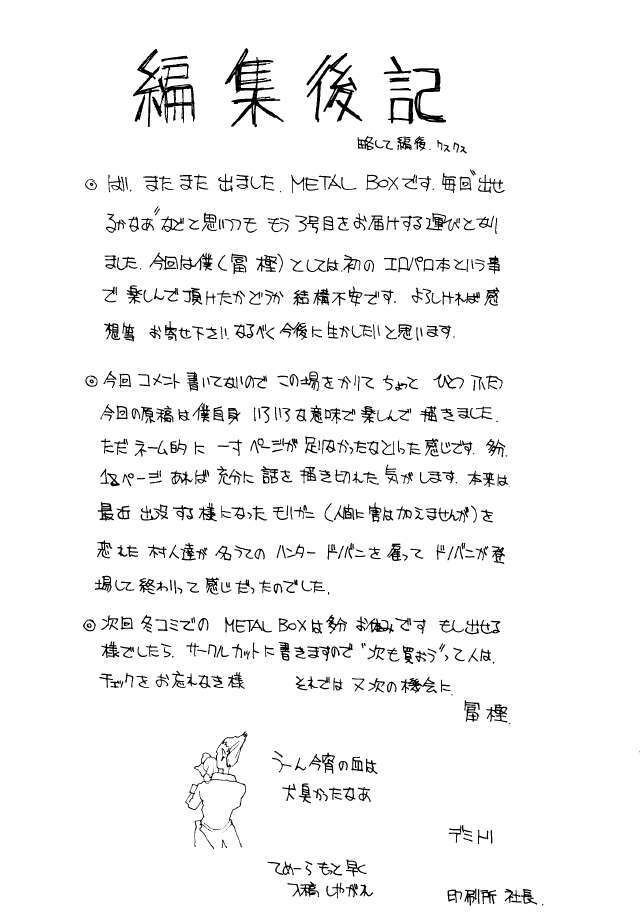 編集後記
略して編後.クスクス
◎ はい、またまた出ました、METAL BOXです.毎回"出せ
るかなあ"などと思いつつも もう3号目をお届けする運びとなり
ました.今回は僕(冨樫)としては初の エロパロ本という事
で 楽しんで頂けたかどうか 結構不安です. よろしければ感
想等 お寄せ下さい.なるべく今後に生かしたいと思います.
◎ 今回 コメント書いてないので この場をかりて ちょっと ひとつ ふたつ
今回の原稿は僕自身 いろいろな意味で楽しんで 描きました.
ただ ネーム的に 一寸 ページが 足りなかったなといった感じです. 多分.
12ページ あれば 充分に 話を 描き切れた 気がします. 本来は
最近 出没する様になった モリガン (人間に害は加えませんが)を
恋えた 村人達が 名うての ハンター ドノバンを 雇って ドノバンが登
場して終わりって感じだったのでした.
◎ 次回 冬コミでの METAL BOXは多分 お休みです もし出せる
様でしたら、サークルカットに書きますので"次も買おう"って人は、
チェックをお忘れなき様 それでは 又次の機会に.
冨樫.
うーん今宵の血は
犬臭かったなあ
デミトリ
てめーら もっと早く
入稿しやがれ
印刷所 社長.